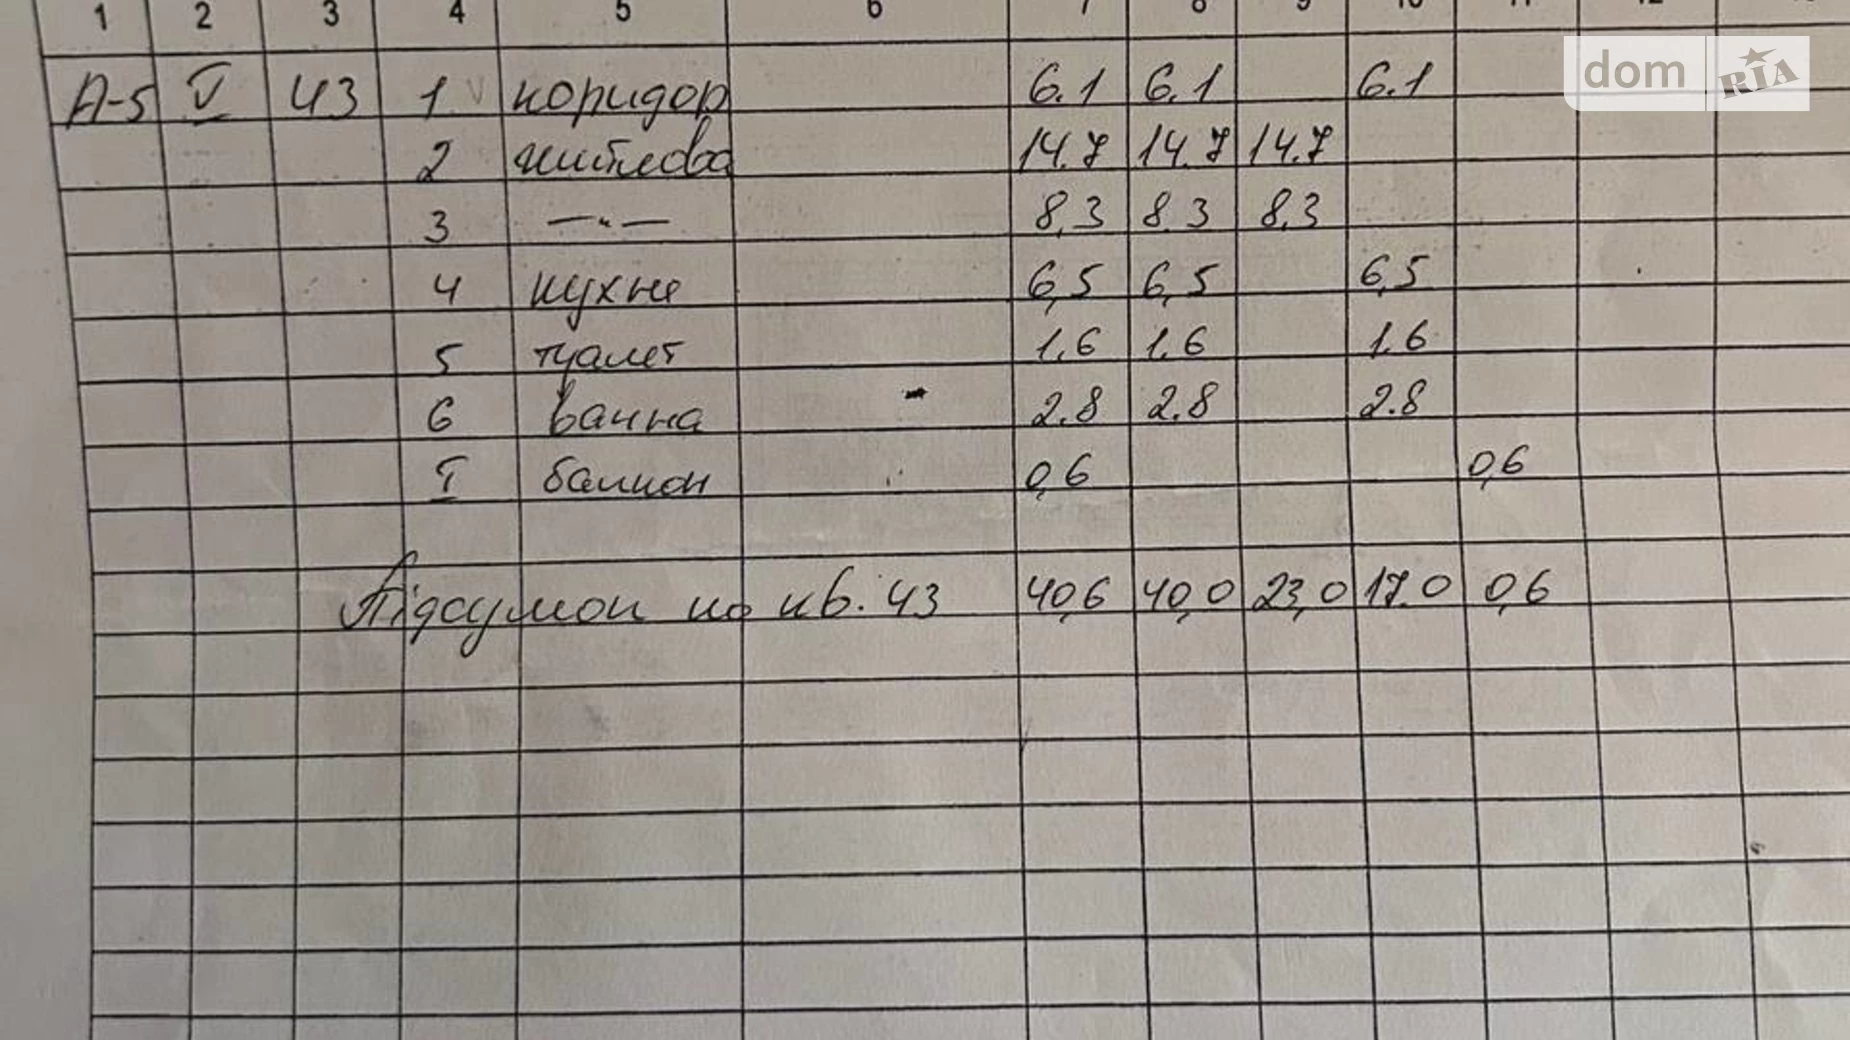 1 2 3 4 5 6 7 8 9 10 11 12 13
dom RIA
А-5 V 43 1 коридор 6.1 6.1 6.1
2 житлова 14.7 14.7 14.7
3 —"— 8,3 8.3 8,3
4 кухне 6,5 6,5 6,5
5 туалет 1,6 1.6 1.6
6 ванна 2.8 2.8 2.8
I балкон 0,6 0,6
Підсумок по кв. 43 40,6 40,0 23,0 17.0 0,6